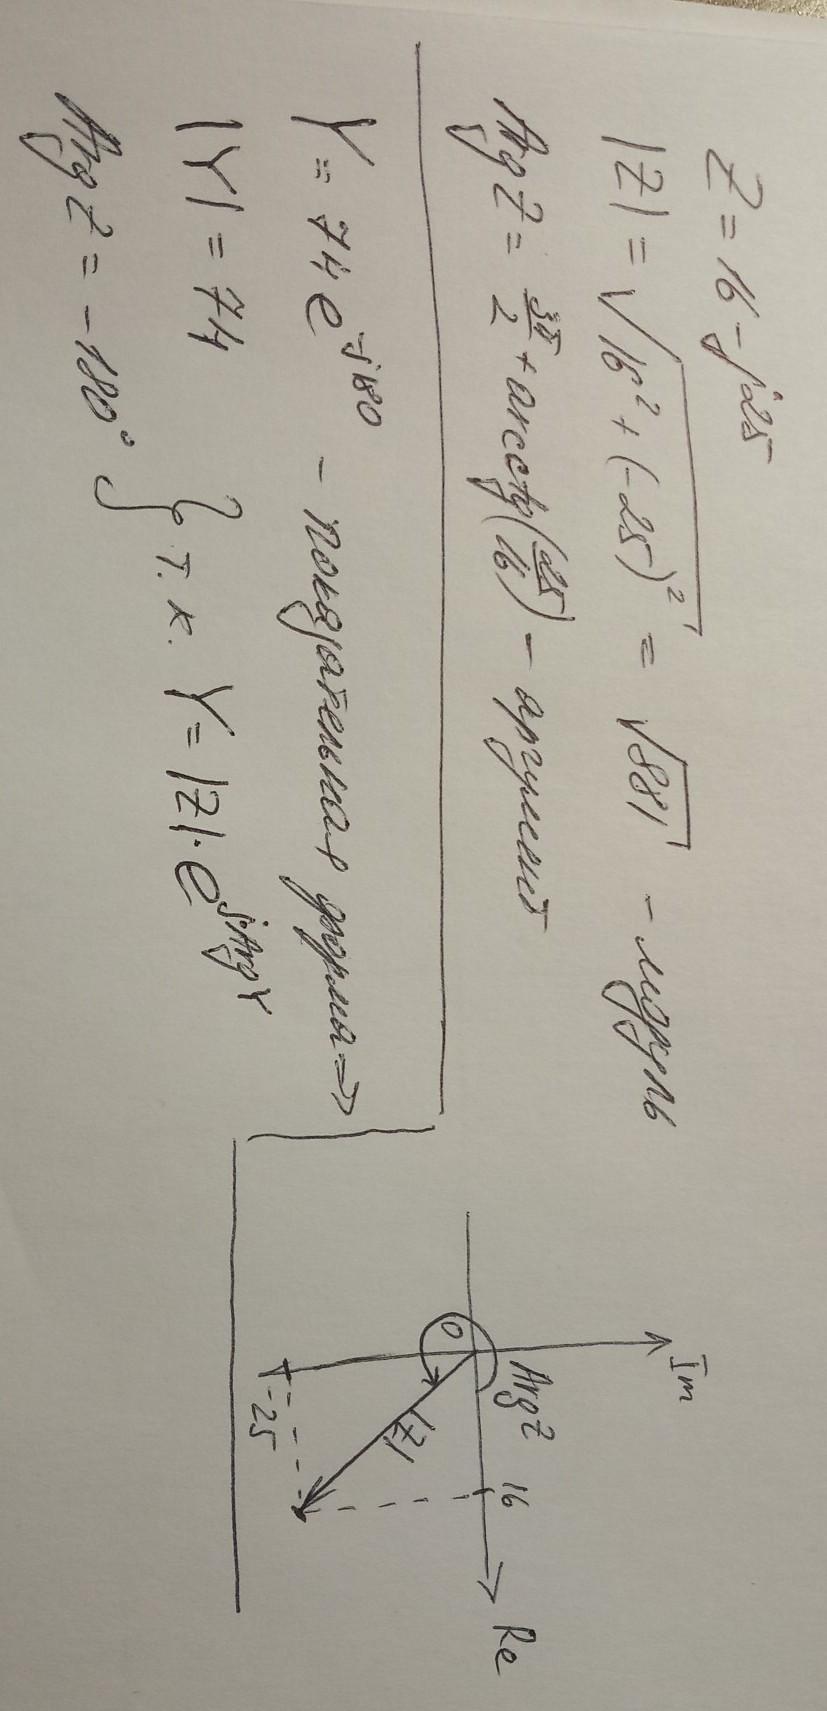 Z = 16 - j25
|Z| = √(16² + (-25)²) = √881 - модуль
Arg Z = 3π/2 + arcctg(25/16) - аргумент
Y = 74 e^(-j180) - показательная форма ⇒
|Y| = 74
Arg Z = -180° } т.к. Y = |Z|·e^(j·Arg Y)
Im
Arg Z
16
Re
0
|Z|
-25